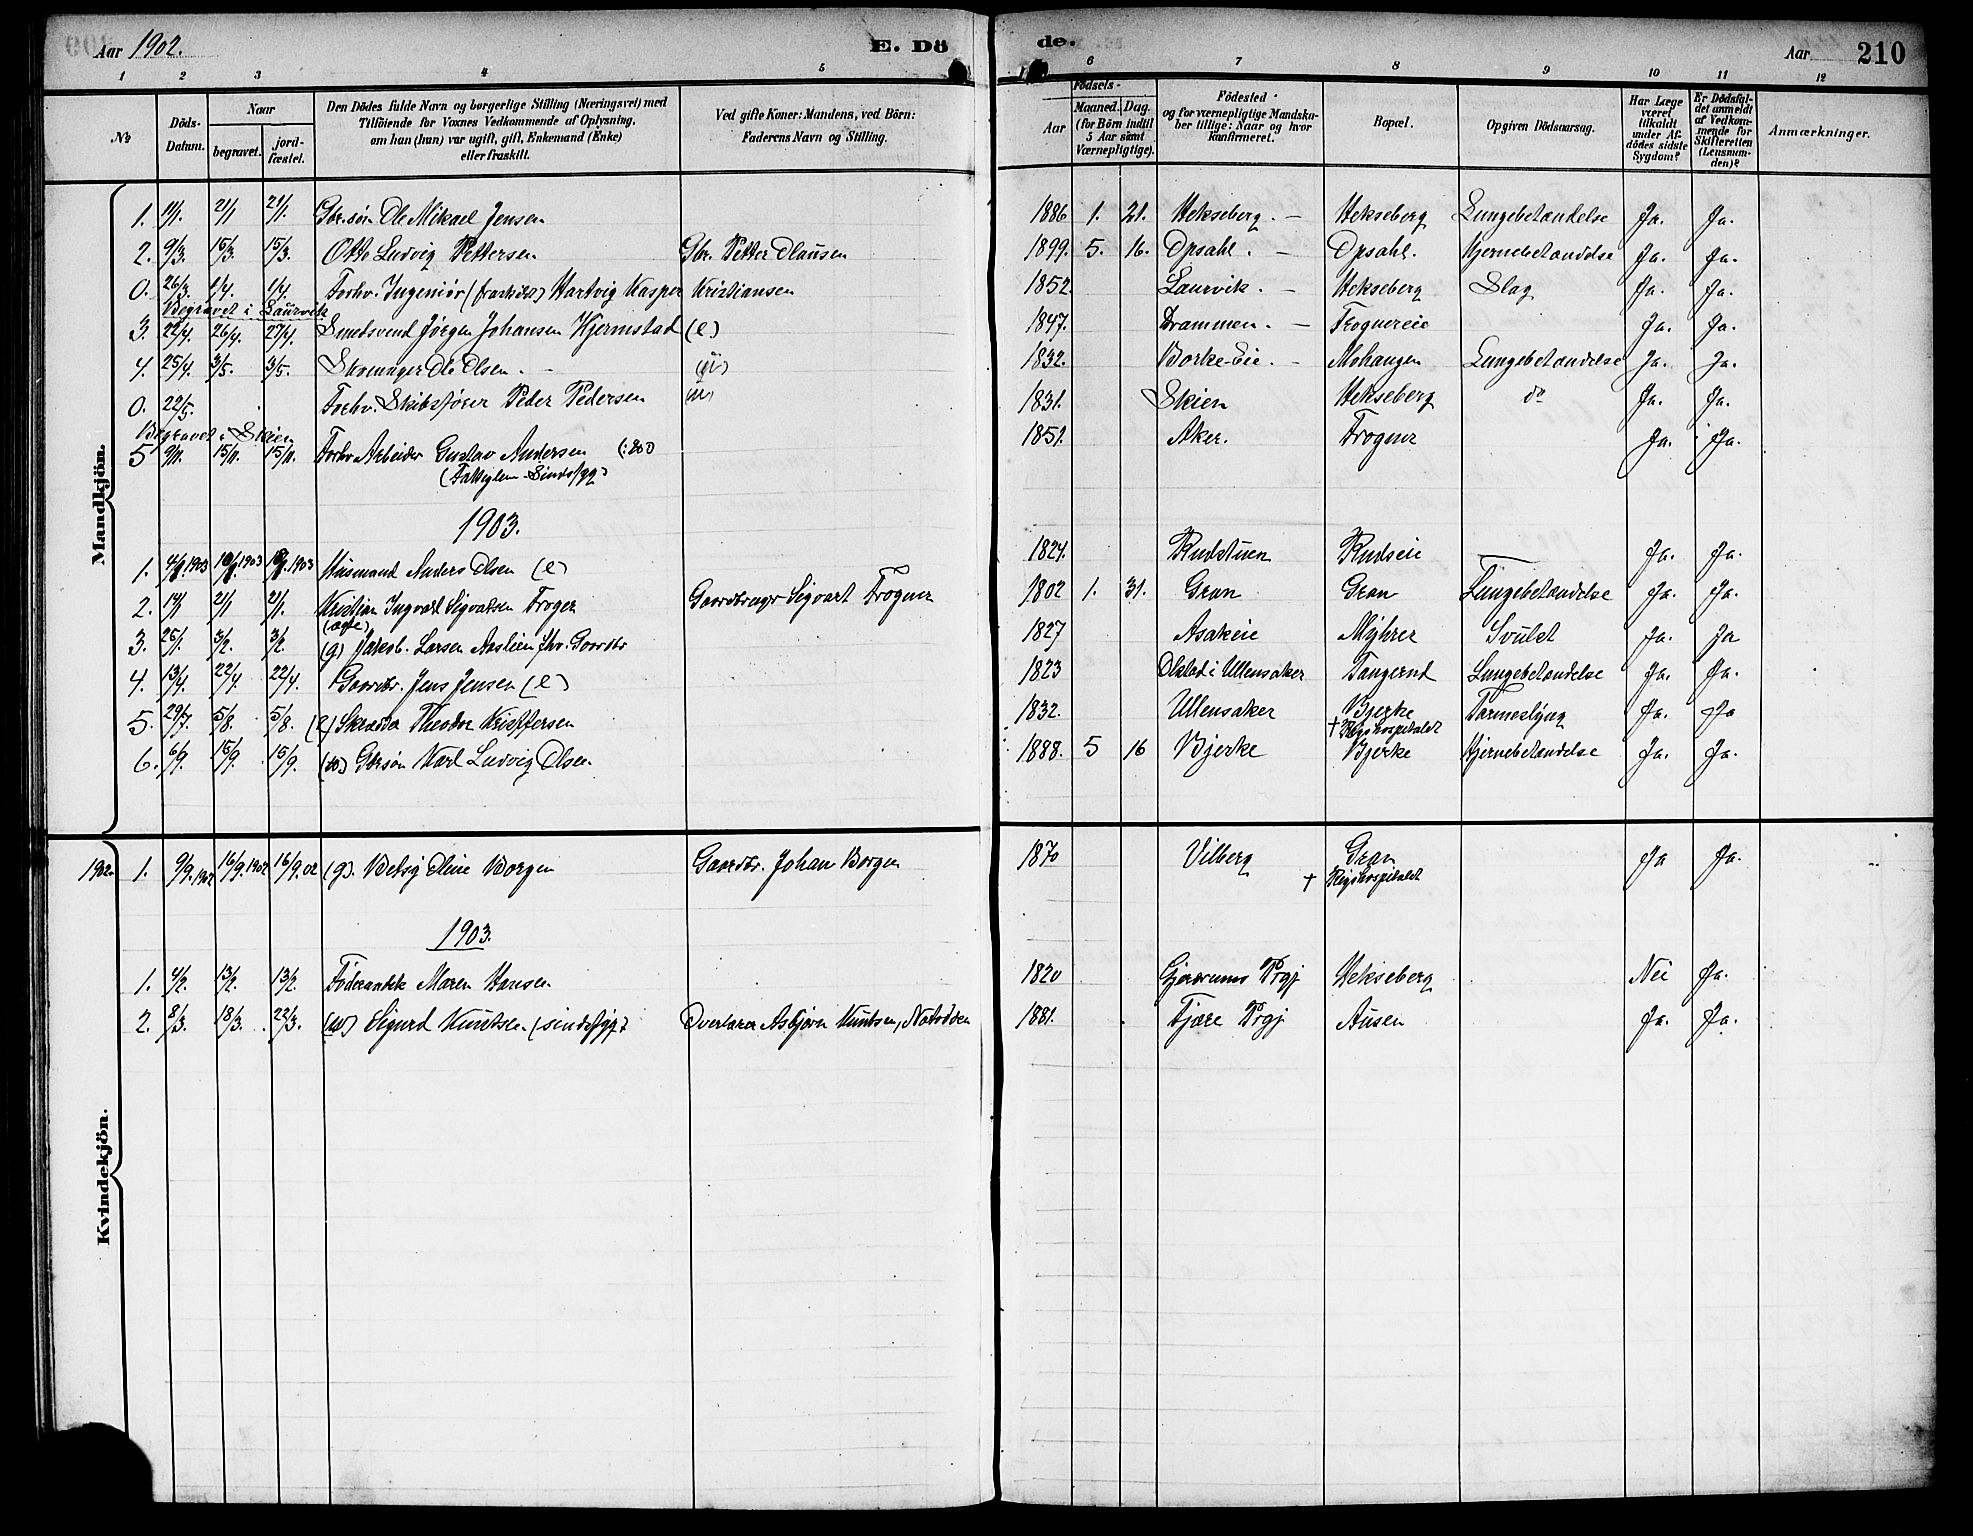 Aar 1902. E. Dö de. Aar 210
1 2 3 4 5 6 7 8 9 10 11 12
No
Döds-Datum.
Naar begravet. jordfæstet.
Den Dödes fulde Navn og borgerlige Stilling (Næringsvei) med Tilföiende for Voxnes Vedkommende af Oplysning, om han (hun) var ugift, gift, Enkemand (Enke) eller fraskilt.
Ved gifte Koner: Mandens, ved Börn: Faderens Navn og Stilling.
Födsels-
Aar Maaned. Dag. (for Börn indtil 5 Aar samt Værnepligtige).
Födested og for værnepligtige Mandskaber tillige: Naar og hvor konfirmeret.
Bopæl.
Opgiven Dödsaarsag.
Har Læge været tilkaldt under Afdödes sidste Sygdom?
Er Dödsfaldet anmeldt af Vedkommende for Skifteretten (Lensmanden)?
Anmærkninger.
Mandkjön.
1. 11/1. 21/1 21/1. Gbr.søn Ole Mikael Jensen 1886 1. 21. Hekseberg. – Hekseberg Lungebetændelse Ja. Ja.
2. 9/3. 15/3. 15/3. Otto Ludvig Pettersen Gbr. Petter Olausen 1899. 5. 16. Opsahl. – Opsahl. Hjernebetændelse Ja. Ja.
0. 26/3. 1/4. 1/4. Forhv. Ingeniør (fraskilt) Hartvig Kasper Kristiansen 1852. Laurvik. – Hekseberg Slag Ja. Ja.
Begravet i Laurvik
3. 22/4. 26/4. 27/4. Smedsvend Jørgen Johansen Hjermstad (e) 1847. Drammen. – Frognereie Ja. Ja.
4. 25/4. 3/5. 3/5. Skomager Ole Olsen. – 1832. Borke-Eie. – Mohaugen Lungebetændelse Ja. Ja.
0. 22/5. Forhv. Skibsfører Peder Pedersen 1831. Skien Hekseberg do Ja. Ja.
Begravet i Skien
5 9/11. 15/11. 15/11. Forhv. Arbeider Gustav Andersen 1851. Aker. Frogner Ja. Ja.
1903.
1. 1903 1903 1903 Husmand Anders Olsen (e) 1824. Rudstuen Rudseie Ja. Ja.
2. 14/1 21/1 21/1. Kristian Ingvart Sigvartsen Frogner Gaardbruger Sigvart Frogner 1802 1. 31. Gran Gran Lungebetændelse Ja. Ja.
3. 25/1. 3/2. 3/2. (g) Jakob Larsen Aaslien fhv. Gaardbr 1827 Asakeie Myhrer Svulst Ja. Ja
4. 13/4. 22/4. 22/4. Gaardbr. Jens Jensen (e) 1823 Olstad i Ullensaker Tangerud Lungebetændelse Ja. Ja.
5. 29/7. 5/8. 5/8. (e) Skrædder Theodor Kristffersen 1832. Ullensaker Bjerke Tarmeslyng Ja. Ja
† Rigshospitalet
6. 6/9. 15/9. 15/9. Gbrsøn Karl Ludvig Olsen 1888. 5 16 Bjerke Bjerke Hjernebetændelse Ja. Ja.
Kvindekjön.
1902. 1. 9/9. 1902 16/9. 1902 16/9. 02 (g). Betsy Oline Borgen Gaardbr. Johan Borgen 1870 Vilberg Gran Ja Ja.
† Rigshospitalet
1903.
1. 4/2. 13/2. 13/2 Føderaadsk Maren Hansen 1820 Gjerdrums Prgj Hekseberg Nei Ja.
2. 8/3. 18/3. 22/3. Sigurd Knutsen (sindssyg) Overlærer Asbjørn Knutsen, Notodden 1881. Fjære Prgj Ausen Ja. Ja.